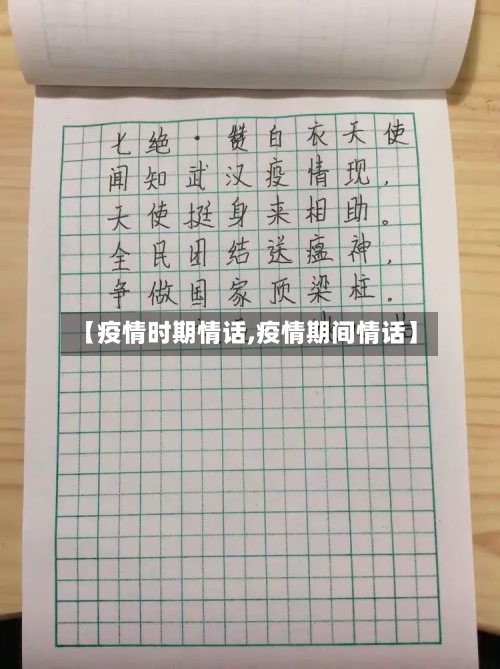 七绝·赞白衣天使
闻知武汉疫情现，
天使挺身来相助。
全民团结送瘟神，
争做国家顶梁柱。
【疫情时期情话,疫情期间情话】